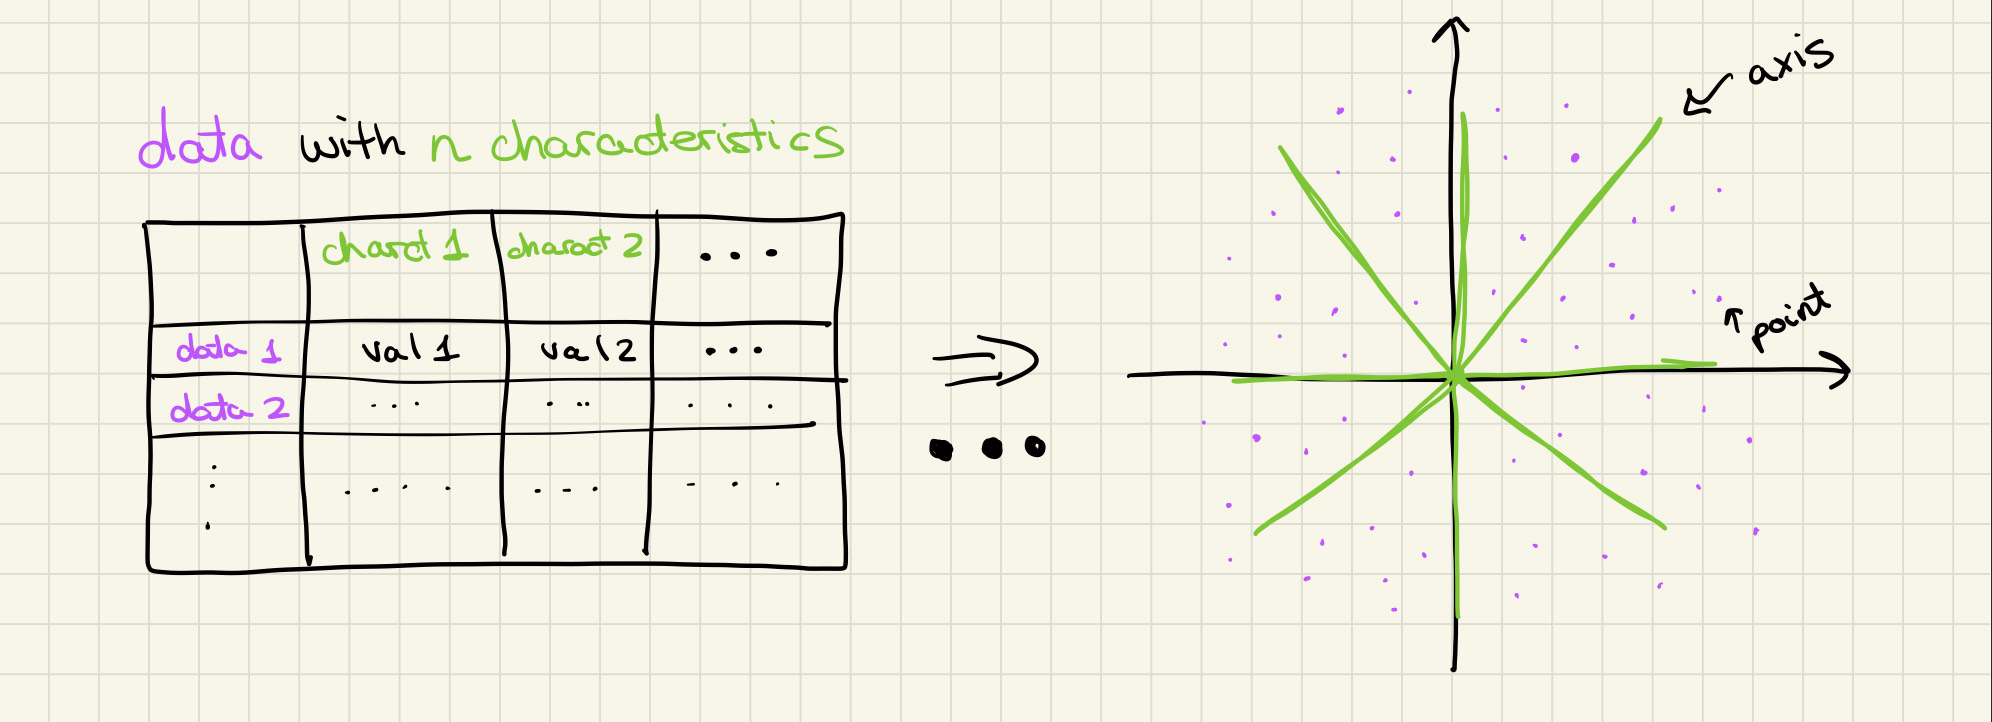 data with n characteristics
charct 1 charact 2 ...
data 1 val 1 val 2 ...
data 2 ... ... ...
axis
point